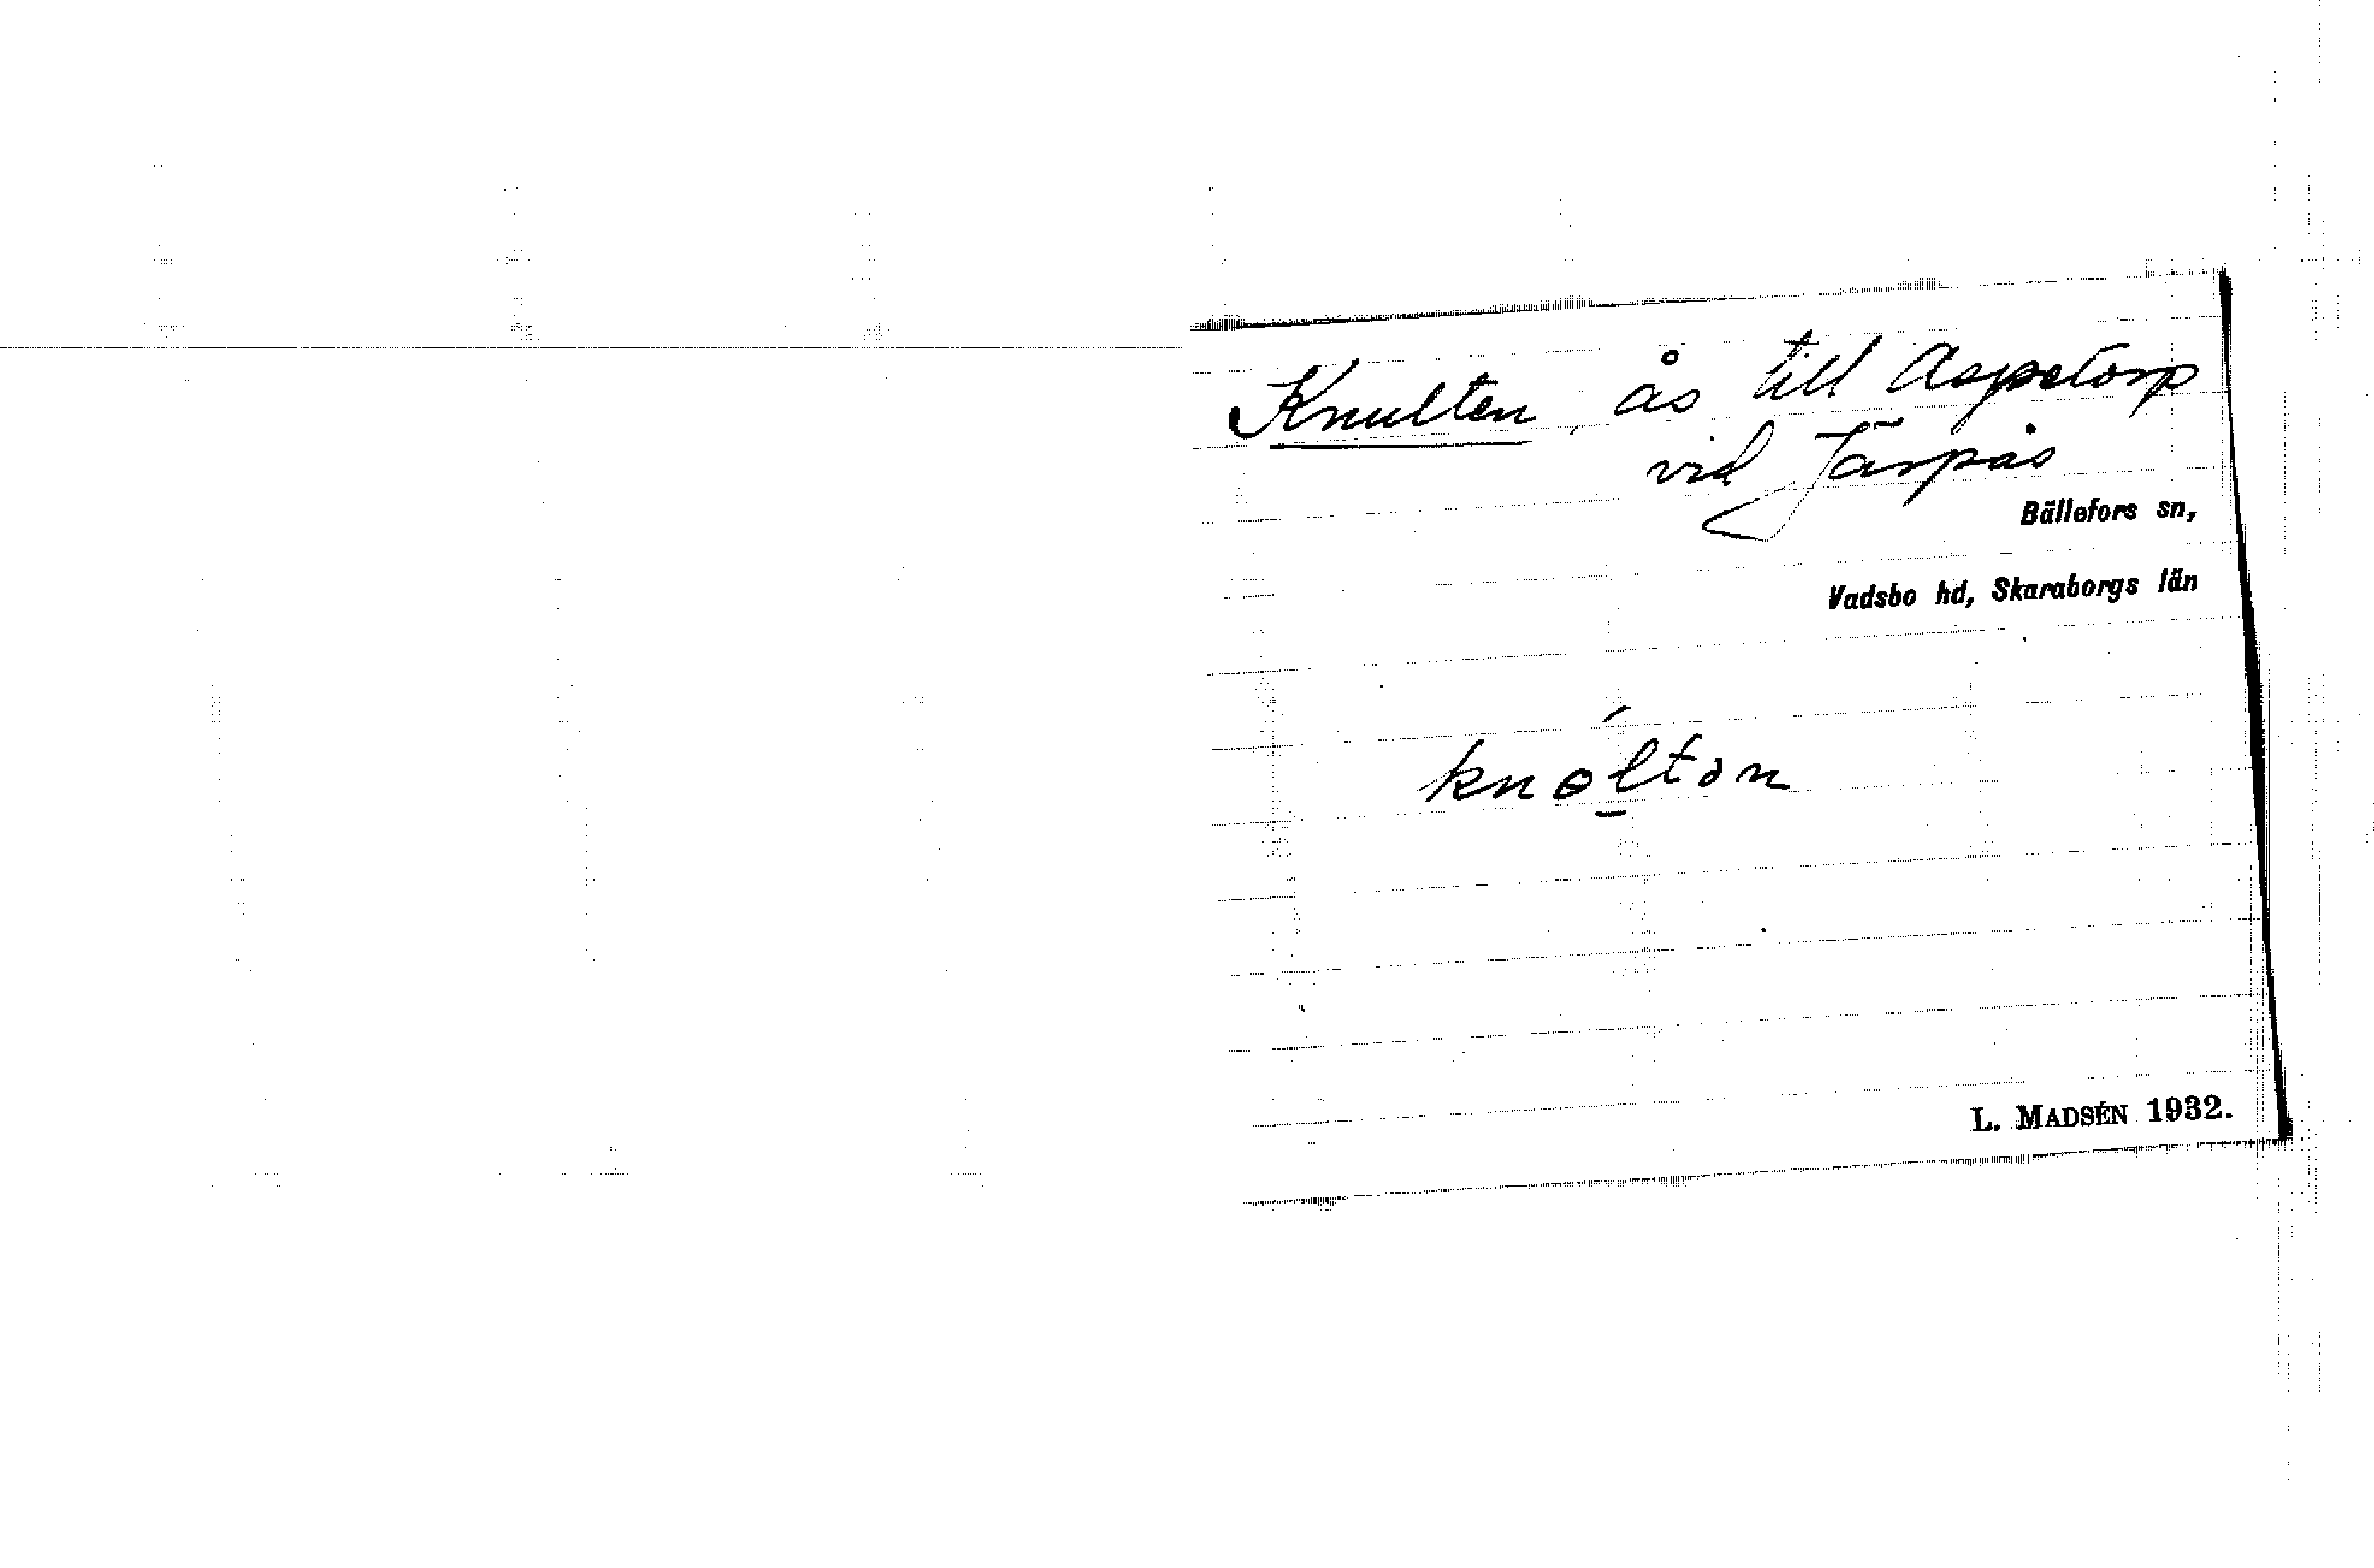 Knulten, ås till Aspetorp
vid Järpås
Bällefors sn,
Vadsbo hd, Skaraborgs län
knɵ́ltən
L. MADSÉN 1932.